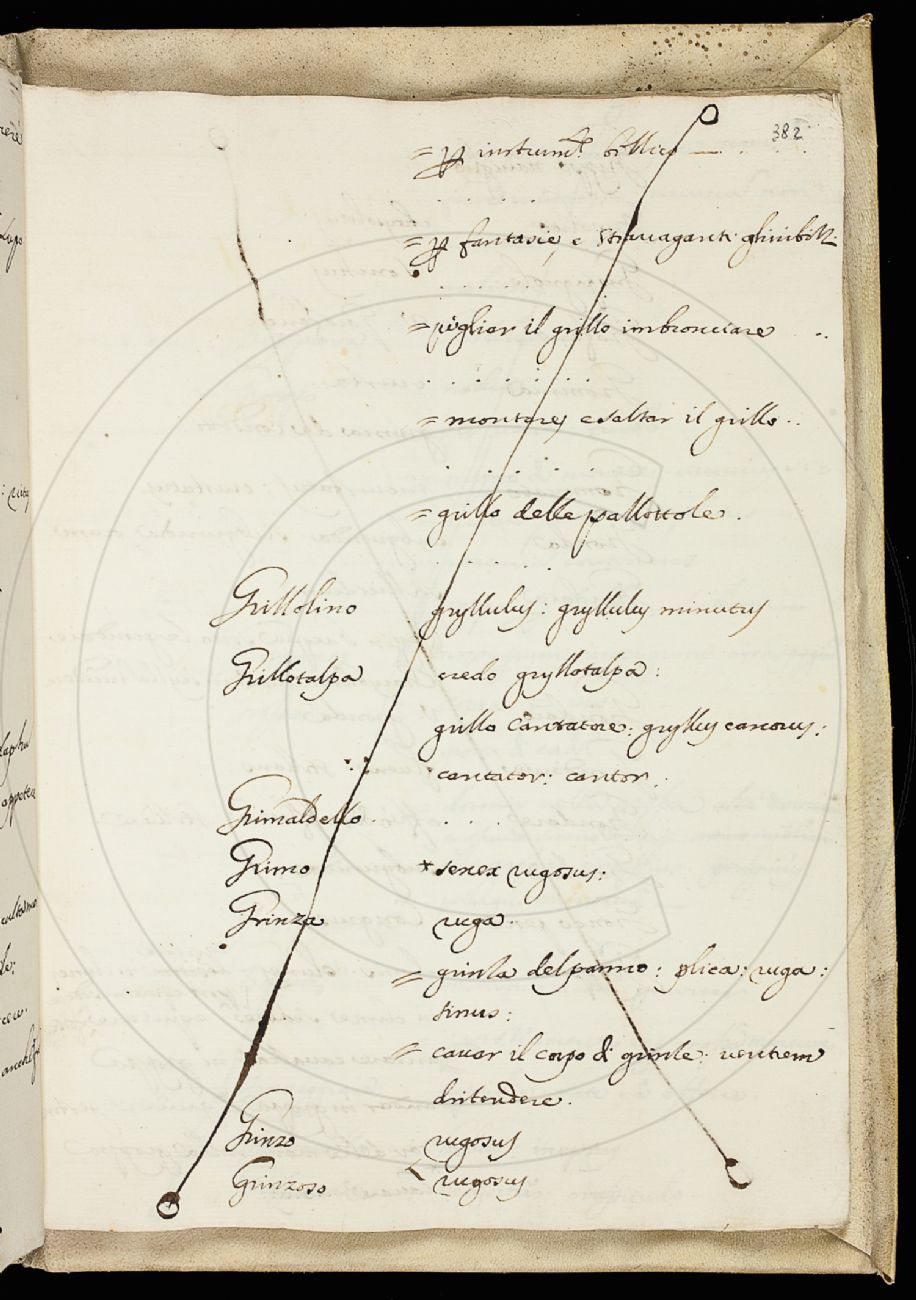 382
= p instrumto bellico —
= p fantasie, e stravaganti ghiribizz.
= pigliar il grillo imbronciare ..
= montare, e saltar il grillo ..
= grillo delle pallottole .
Grillolino gryllulus: gryllulus minutus
Grillotalpa credo gryllotalpa:
grillo cantatore: gryllus canorus:
cantator: cantor.
Grimaldello.
Grimo * senex rugosus:
Grinza ruga.
= grinza del panno: plica: ruga:
sinus:
= cavar il corpo di grinze: ventrem
distendere.
Grinzo rugosus
Grinzoso rugosus